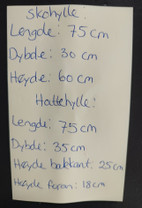 Skohylle:
Lengde: 75cm
Dybde: 30 cm
Høyde: 60cm
Hattehylle:
Lengde: 75cm
Dybde: 35cm
Høyde bakkant: 25cm
Høyde foran: 18cm